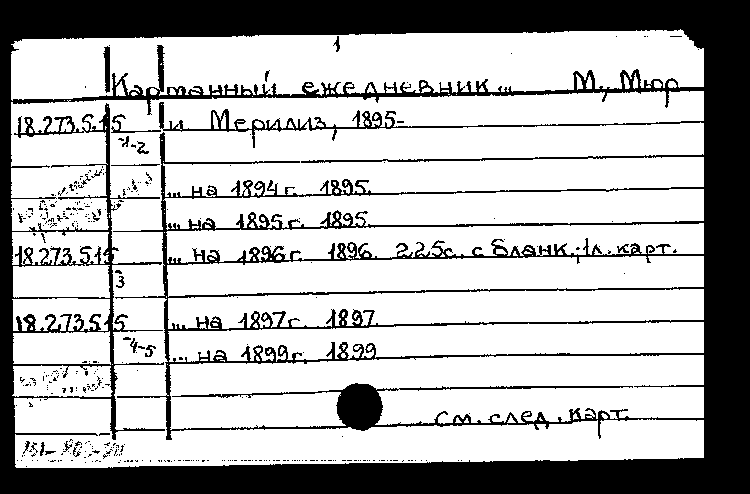 1
Картанный ежедневник... М., Мюр
18.273.5.15 и Мерилиз, 1895-
1-2
... на 1894г. 1895.
... на 1895г. 1895.
18.273.5.15 ... на 1896г. 1896. 225с. с бланк.; 1л. карт.
3
18.273.5.15 ... на 1897г. 1897
-4-5 ... на 1899г. 1899
см. след. карт.